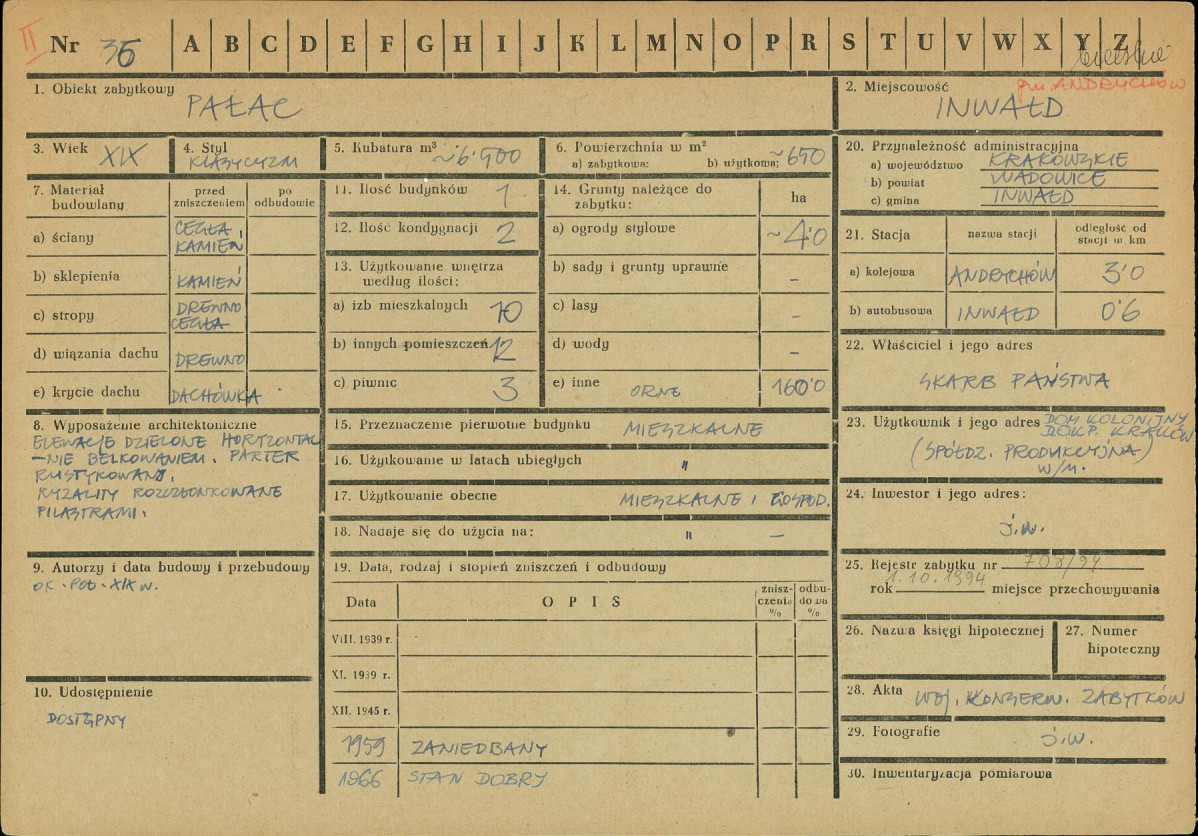 II Nr 36 A B C D E F G H I J K L M N O P R S T U V W X Y Z
1. Obiekt zabytkowy PAŁAC
2. Miejscowość gm. ANDRYCHÓW
INWAŁD
3. Wiek XIX
4. Styl KLASYCYZM
5. Kubatura m³ ~6.500
6. Powierzchnia w m²
a) zabytkowa: b) użytkowa: ~650
20. Przynależność administracyjna
a) województwo KRAKOWSKIE
b) powiat WADOWICE
c) gmina INWAŁD
7. Materiał budowlany przed zniszczeniem po odbudowie
a) ściany CEGŁA, KAMIEŃ
b) sklepienia KAMIEŃ
c) stropy DREWNO CEGŁA
d) wiązania dachu DREWNO
e) krycie dachu DACHÓWKA
11. Ilość budynków 1
12. Ilość kondygnacji 2
13. Użytkowanie wnętrza
według ilości:
a) izb mieszkalnych 10
b) innych pomieszczeń 12
c) piwnic 3
14. Grunty należące do
zabytku: ha
a) ogrody stylowe ~4'0
b) sady i grunty uprawne –
c) lasy –
d) wody –
e) inne ORNE 160'0
21. Stacja nazwa stacji odległość od stacji w km
a) kolejowa ANDRYCHÓW 3'0
b) autobusowa INWAŁD 0'6
22. Właściciel i jego adres
SKARB PAŃSTWA
8. Wyposażenie architektoniczne
ELEWACJE DZIELONE HORYZONTAL
–NIE BELKOWANIEM. PARTER
RUSTYKOWANY.
RYZALITY ROZCZŁONKOWANE
PILASTRAMI.
15. Przeznaczenie pierwotne budynku MIESZKALNE
16. Użytkowanie w latach ubiegłych "
17. Użytkowanie obecne MIESZKALNE I GOSPOD.
18. Nadaje się do użycia na: " –
23. Użytkownik i jego adres DOM KOLONIJNY
DOKP. KRAKÓW
(SPÓŁDZ. PRODUKCYJNA)
W/M.
24. Inwestor i jego adres:
j.w.
9. Autorzy i data budowy i przebudowy
OK. POŁ. XIX W.
19. Data, rodzaj i stopień zniszczeń i odbudowy
Data OPIS znisz-czenia % odbu-dowa %
VIII. 1939 r.
XI. 1939 r.
XII. 1945 r.
1959 ZANIEDBANY
1966 STAN DOBRY
25. Rejestr zabytku nr 708/94
rok 1.10.1994 miejsce przechowywania
26. Nazwa księgi hipotecznej
27. Numer
hipoteczny
10. Udostępnienie
DOSTĘPNY
28. Akta WOJ. KONSERW. ZABYTKÓW
29. Fotografie j.w.
30. Inwentaryzacja pomiarowa